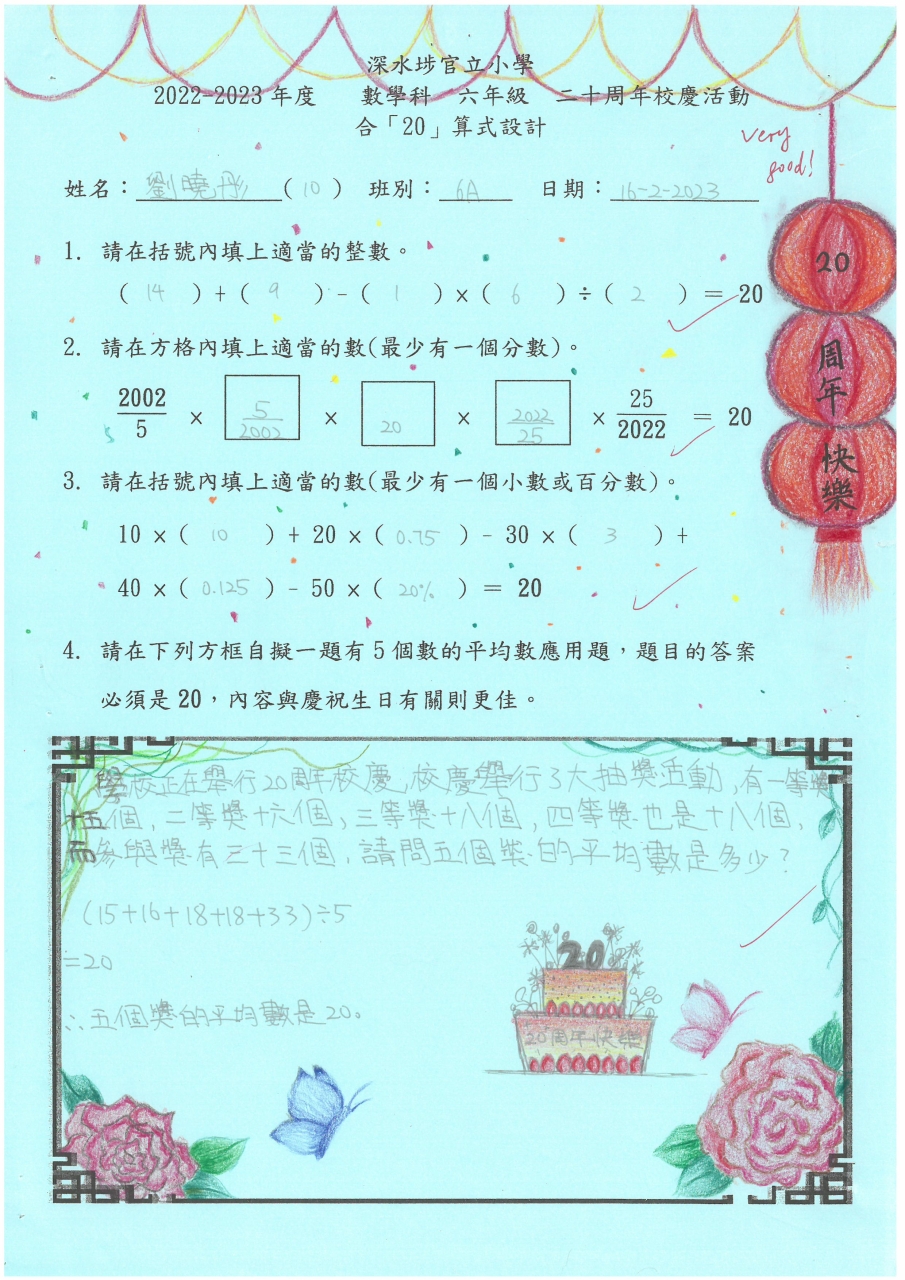 深水埗官立小學
2022-2023 年度 數學科 六年級 二十周年校慶活動
合「20」算式設計
very good!
姓名：劉曉彤(10) 班別：6A 日期：16-2-2023
20
周年快樂
1. 請在括號內填上適當的整數。
( 14 ) + ( 9 ) - ( 1 ) × ( 6 ) ÷ ( 2 ) = 20
2. 請在方格內填上適當的數(最少有一個分數)。
2002/5 × 5/2002 × 20 × 2022/25 × 25/2022 = 20
3. 請在括號內填上適當的數(最少有一個小數或百分數)。
10 × ( 10 ) + 20 × ( 0.75 ) - 30 × ( 3 ) +
40 × ( 0.125 ) - 50 × ( 20% ) = 20
4. 請在下列方框自擬一題有 5 個數的平均數應用題，題目的答案
必須是 20，內容與慶祝生日有關則更佳。
學校正在舉行20周年校慶,校慶舉行3大抽獎活動,有一等獎
十五個,二等獎十六個,三等獎十八個,四等獎也是十八個,
而參與獎有三十三個,請問五個獎的平均數是多少?
(15+16+18+18+33)÷5
=20
∴五個獎的平均數是20。
20
20周年快樂